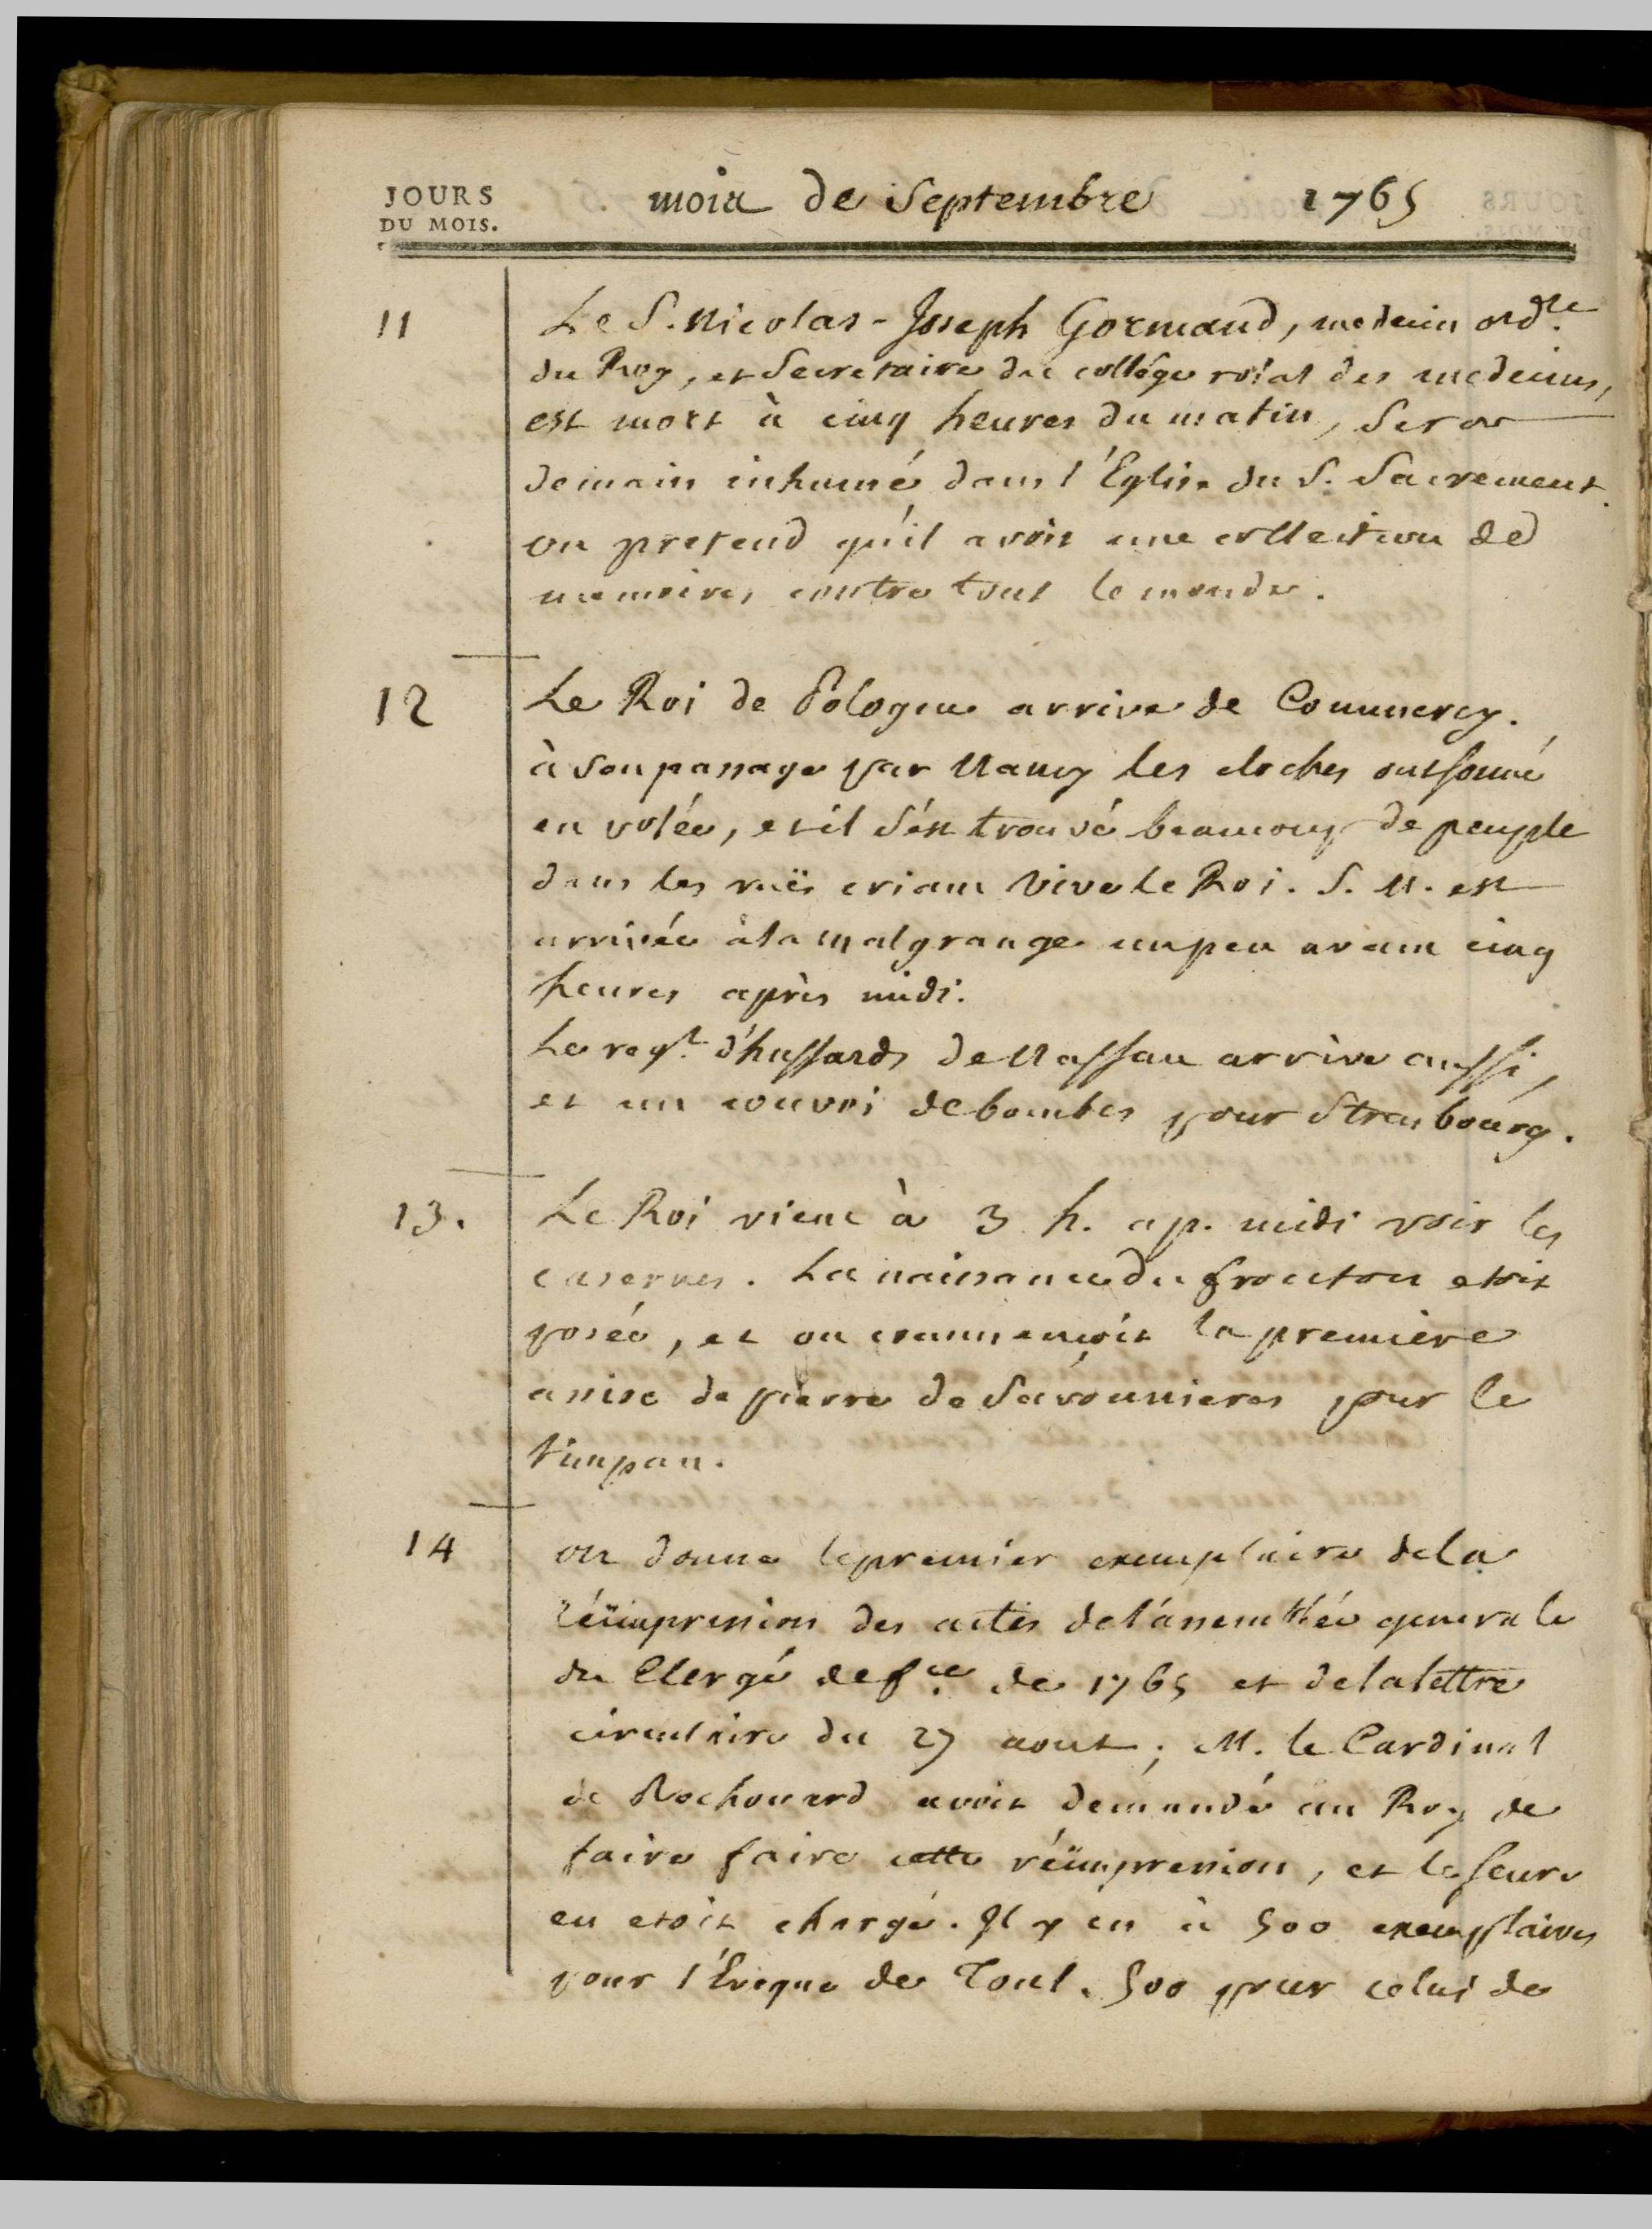 JOURS
DU MOIS.
mois de Septembre 1765
11
Le S. Nicolas-Joseph Gormand, medecin ord.re
du Roy, et Secretaire du collége roïal des medecins,
est mort à cinq heures du matin, Sera
demain inhumé dans l'Eglise du S. Sacrement.
on pretend qu'il avoit une collection de
memoires contre tout le monde.
12
Le Roi de Pologne arrive de Commercy.
à son passage par Nancy les cloches ont sonné
en volée, et il s'est trouvé beaucoup de peuple
dans les ruës criant Vive le Roi. S. M. est
arrivée à la malgrange un peu avant cinq
heures après midi.
Le reg.t d'hussards de Nassau arrive aussi,
et un convoi de bombes pour Strasbourg.
13.
Le Roi vient à 3 h. ap. midi voir les
casernes. La naissance du fronton etoit
posée, et on commençoit la premiere
assise de pierre de Savonnieres pour le
timpan.
14
on donne le premier exemplaire de la
réïmpression des actes de l'assemblée generale
du Clergé de f.ce de 1765 et de la lettre
circulaire du 27 aout; M. le Cardinal
de Rochouard avoit demandé au Roy de
faire faire cette réïmpression, et leseure
en etoit chargé. Il y en a 500 exemplaires
pour l'Eveque de Toul. 500 pour celui de